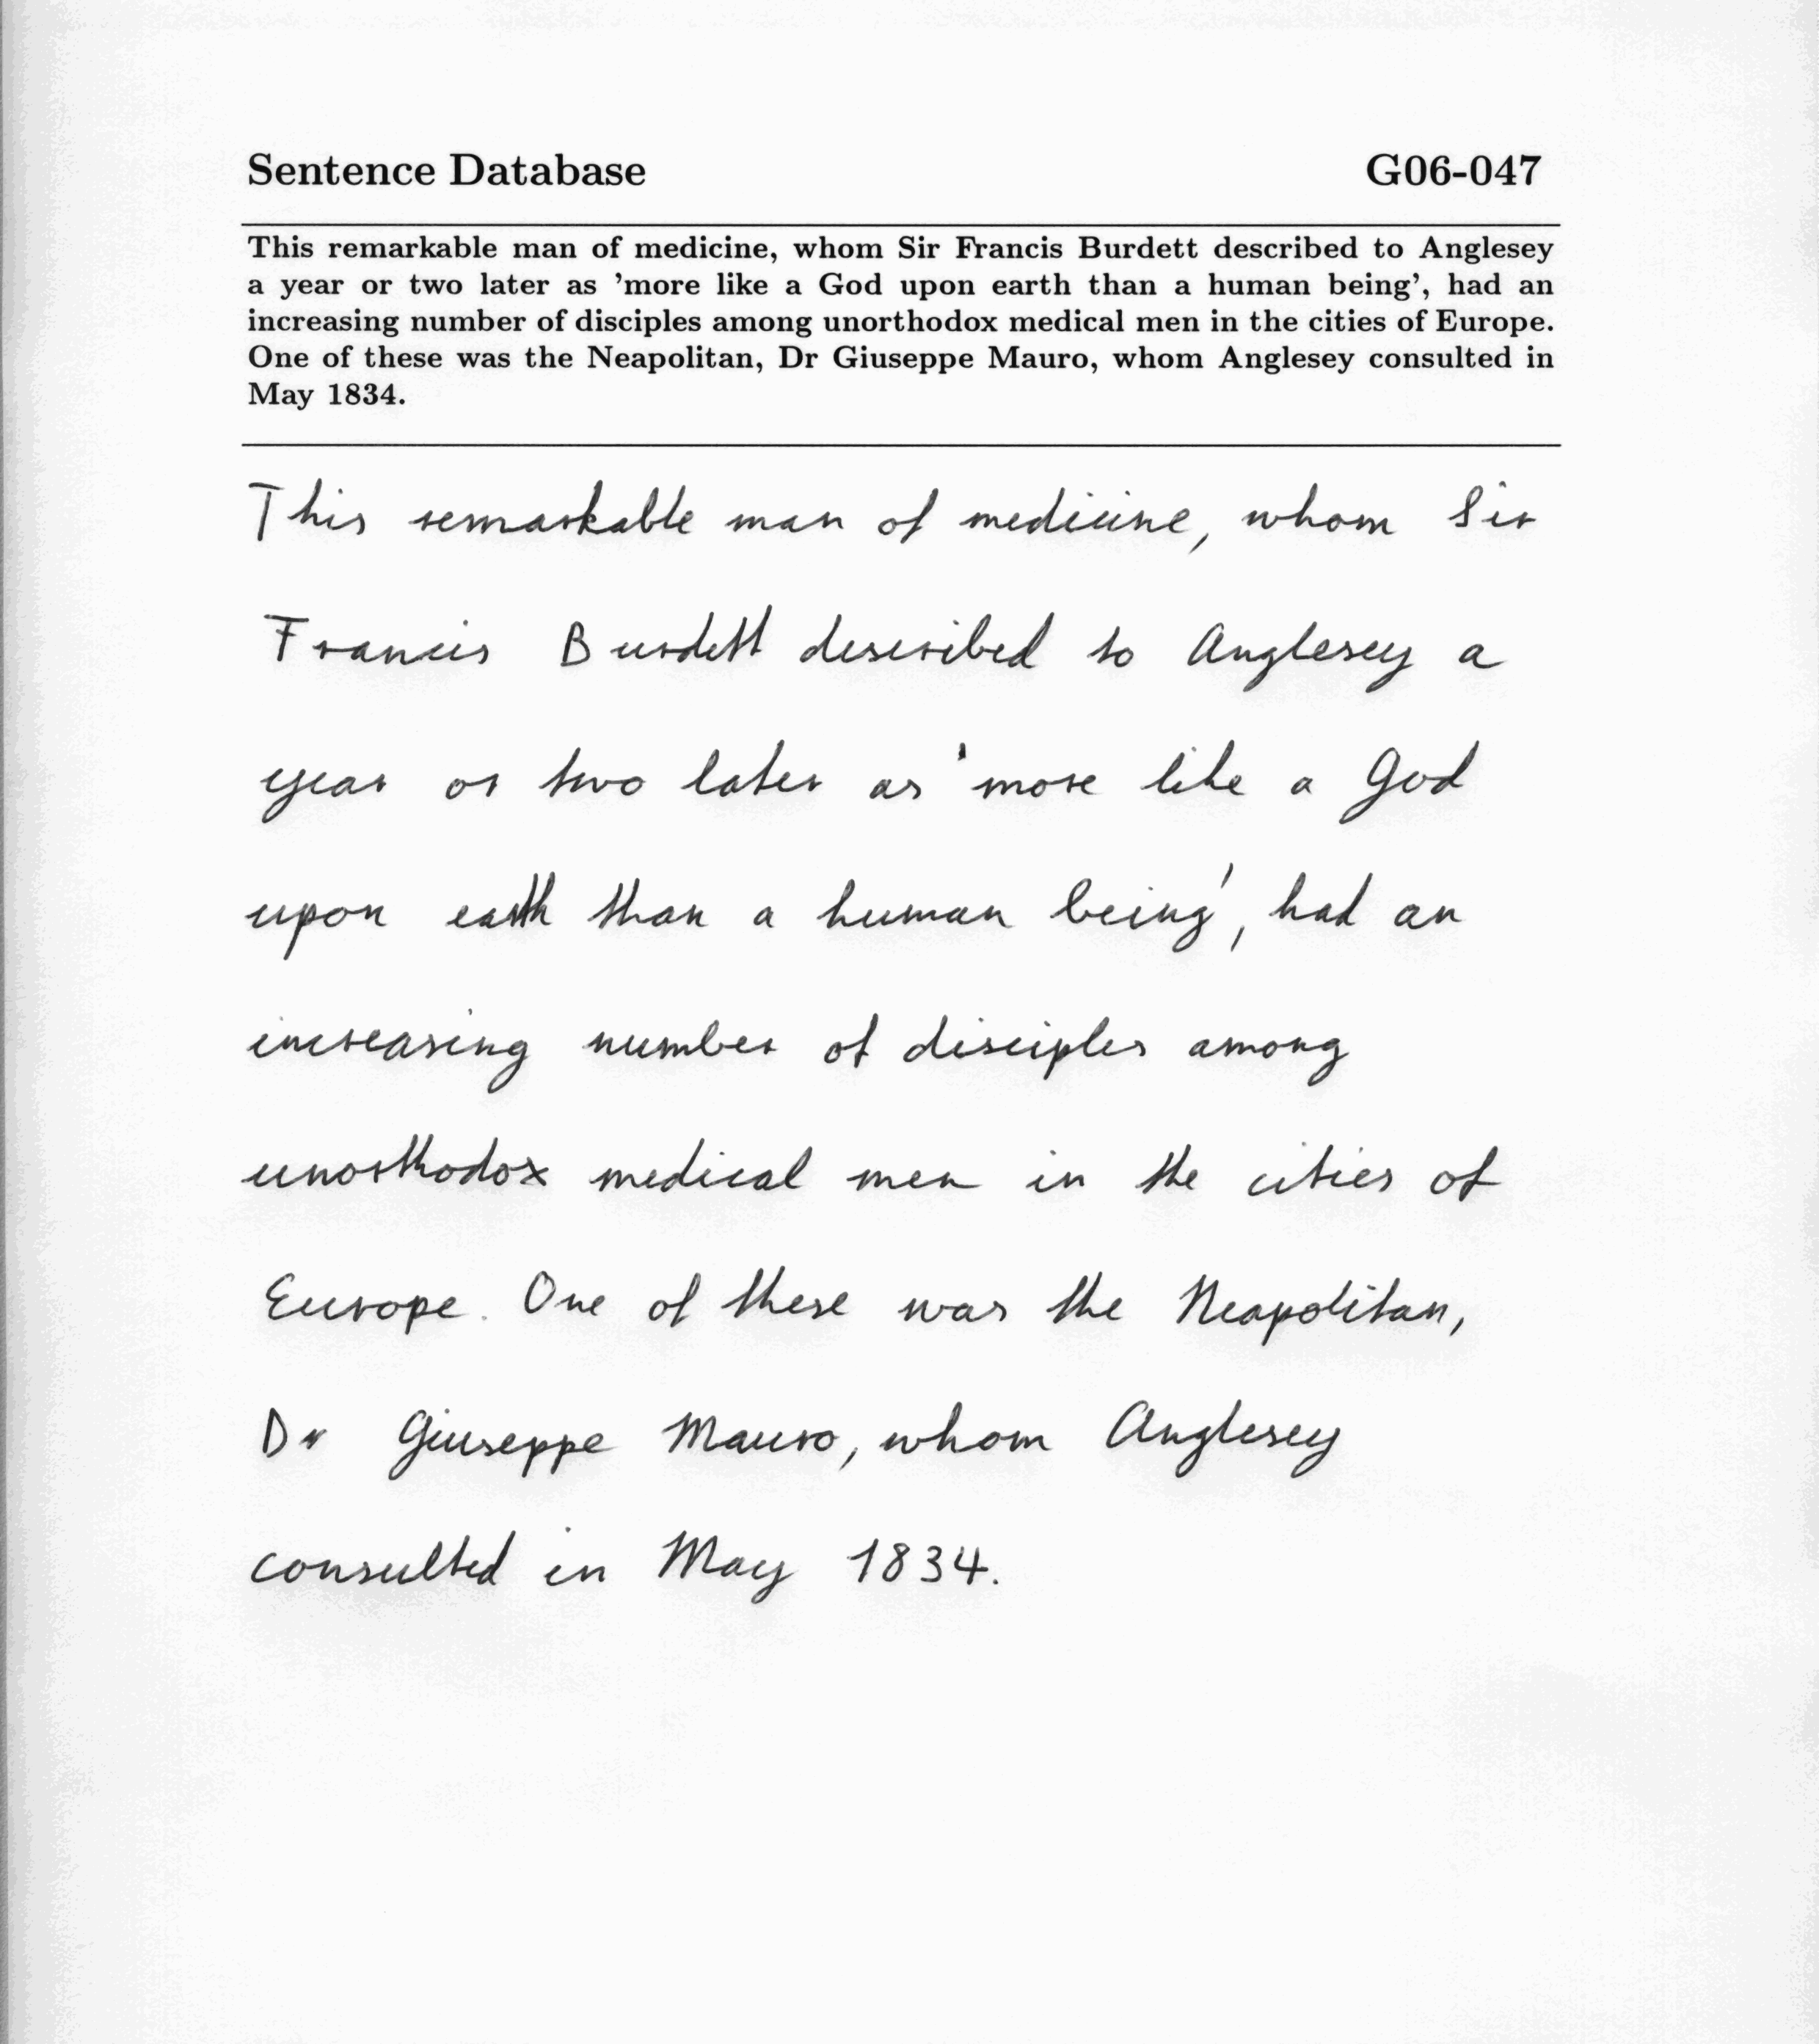 Sentence Database G06-047
This remarkable man of medicine, whom Sir Francis Burdett described to Anglesey
a year or two later as 'more like a God upon earth than a human being', had an
increasing number of disciples among unorthodox medical men in the cities of Europe.
One of these was the Neapolitan, Dr Giuseppe Mauro, whom Anglesey consulted in
May 1834.
This remarkable man of medicine, whom Sir
Francis Burdett described to Anglesey a
year or two later as 'more like a God
upon earth than a human being', had an
increasing number of disciples among
unorthodox medical men in the cities of
Europe. One of these was the Neapolitan,
Dr Giuseppe Mauro, whom Anglesey
consulted in May 1834.